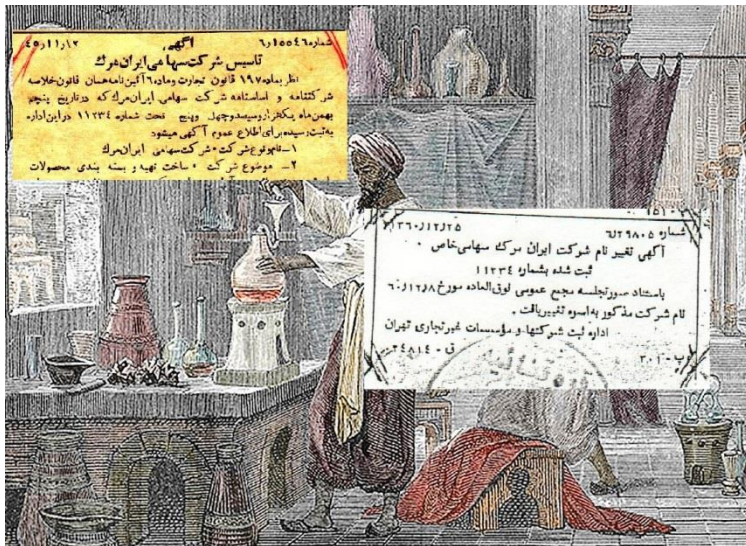 شماره ۶ر۱۵۵۴۶ آگهی ۴۵ر۱۱ر۱۲
تاسیس شرکت سهامی ایران مرك
نظر بماده ۱۹۷ قانون تجارت و ماده ۶ آئین نامه همان قانون خلاصه
شرکتنامه و اساسنامه شرکت سهامی ایران مرك که در تاریخ پنجم
بهمن ماه یکهزار و سیصد و چهل و پنج تحت شماره ۱۱۲۳۴ در این اداره
به ثبت رسیده برای اطلاع عموم آگهی میشود
۱ــ نام و نوع شرکت ۰ شرکت سهامی ایران مرك
۲ــ موضوع شرکت ۰ ساخت تهیه و بسته بندی محصولات
۱۵۱۰
شماره ۶ر۲۹۸۰۵ ۱۳۶۰ر۱۲ر۲۵
آگهی تغییر نام شرکت ایران مرك سهامی خاص ۰
ثبت شده بشماره ۱۱۲۳۴
باستناد صورتجلسه مجمع عمومی فوق العاده مورخ ۶۰ر۱۲ر۸
نام شرکت مذکور به اسوه تغییر یافت ۰
اداره ثبت شرکتها و مؤسسات غیرتجاری تهران